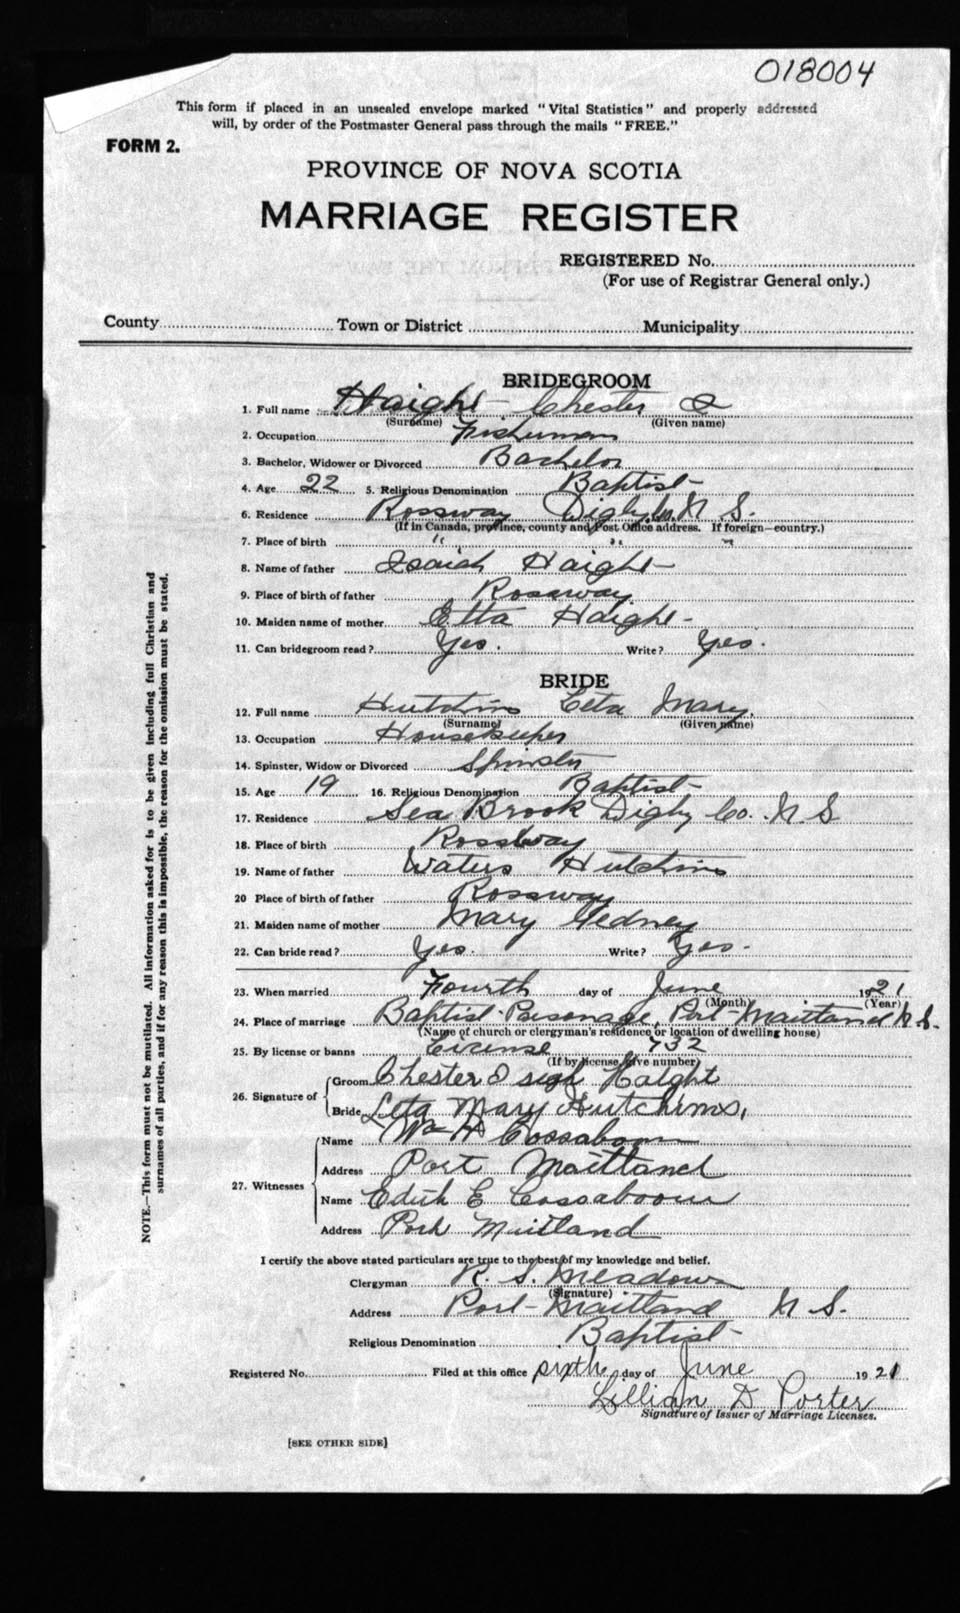 018004
This form if placed in an unsealed envelope marked "Vital Statistics" and properly addressed
will, by order of the Postmaster General pass through the mails "FREE."
FORM 2.
PROVINCE OF NOVA SCOTIA
MARRIAGE REGISTER
REGISTERED No.
(For use of Registrar General only.)
County Town or District Municipality
BRIDEGROOM
1. Full name Haight Chester
(Surname) (Given name)
2. Occupation Fisherman
3. Bachelor, Widower or Divorced Bachelor
4. Age 22 5. Religious Denomination Baptist
6. Residence Rossway Digby Co. N S.
(If in Canada, province, county and Post Office address. If foreign—country.)
7. Place of birth " " "
8. Name of father Isaiah Haight
9. Place of birth of father Rossway
10. Maiden name of mother Etta Haight
11. Can bridegroom read? Yes. Write? Yes.
BRIDE
12. Full name Hutchins Leta Mary.
(Surname) (Given name)
13. Occupation Housekeeper
14. Spinster, Widow or Divorced Spinster
15. Age 19 16. Religious Denomination Baptist
17. Residence Sea Brook Digby Co. N S
18. Place of birth Rossway
19. Name of father Hutchins
20 Place of birth of father Rossway
21. Maiden name of mother Mary Gedney
22. Can bride read? Yes. Write? Yes.
23. When married Fourth day of June 1921
(Month) (Year)
24. Place of marriage Baptist Parsonage, Port Maitland N S.
(Name of church or clergyman's residence or location of dwelling house)
25. By license or banns License 732
(If by license, give number)
26. Signature of Groom Chester Haight
Bride Leta Mary Hutchins,
27. Witnesses Name Wm H Cossaboom
Address Port Maitland
Name Edith E Cossaboom
Address Port Maitland
I certify the above stated particulars are true to the best of my knowledge and belief.
Clergyman R. S. Meadows
(Signature)
Address Port Maitland N S.
Religious Denomination Baptist
Registered No. Filed at this office sixth day of June 1921
Lillian D Porter
Signature of Issuer of Marriage Licenses.
[SEE OTHER SIDE]
NOTE.—This form must not be mutilated. All information asked for is to be given including full Christian and
surnames of all parties, and if for any reason this is impossible, the reason for the omission must be stated.